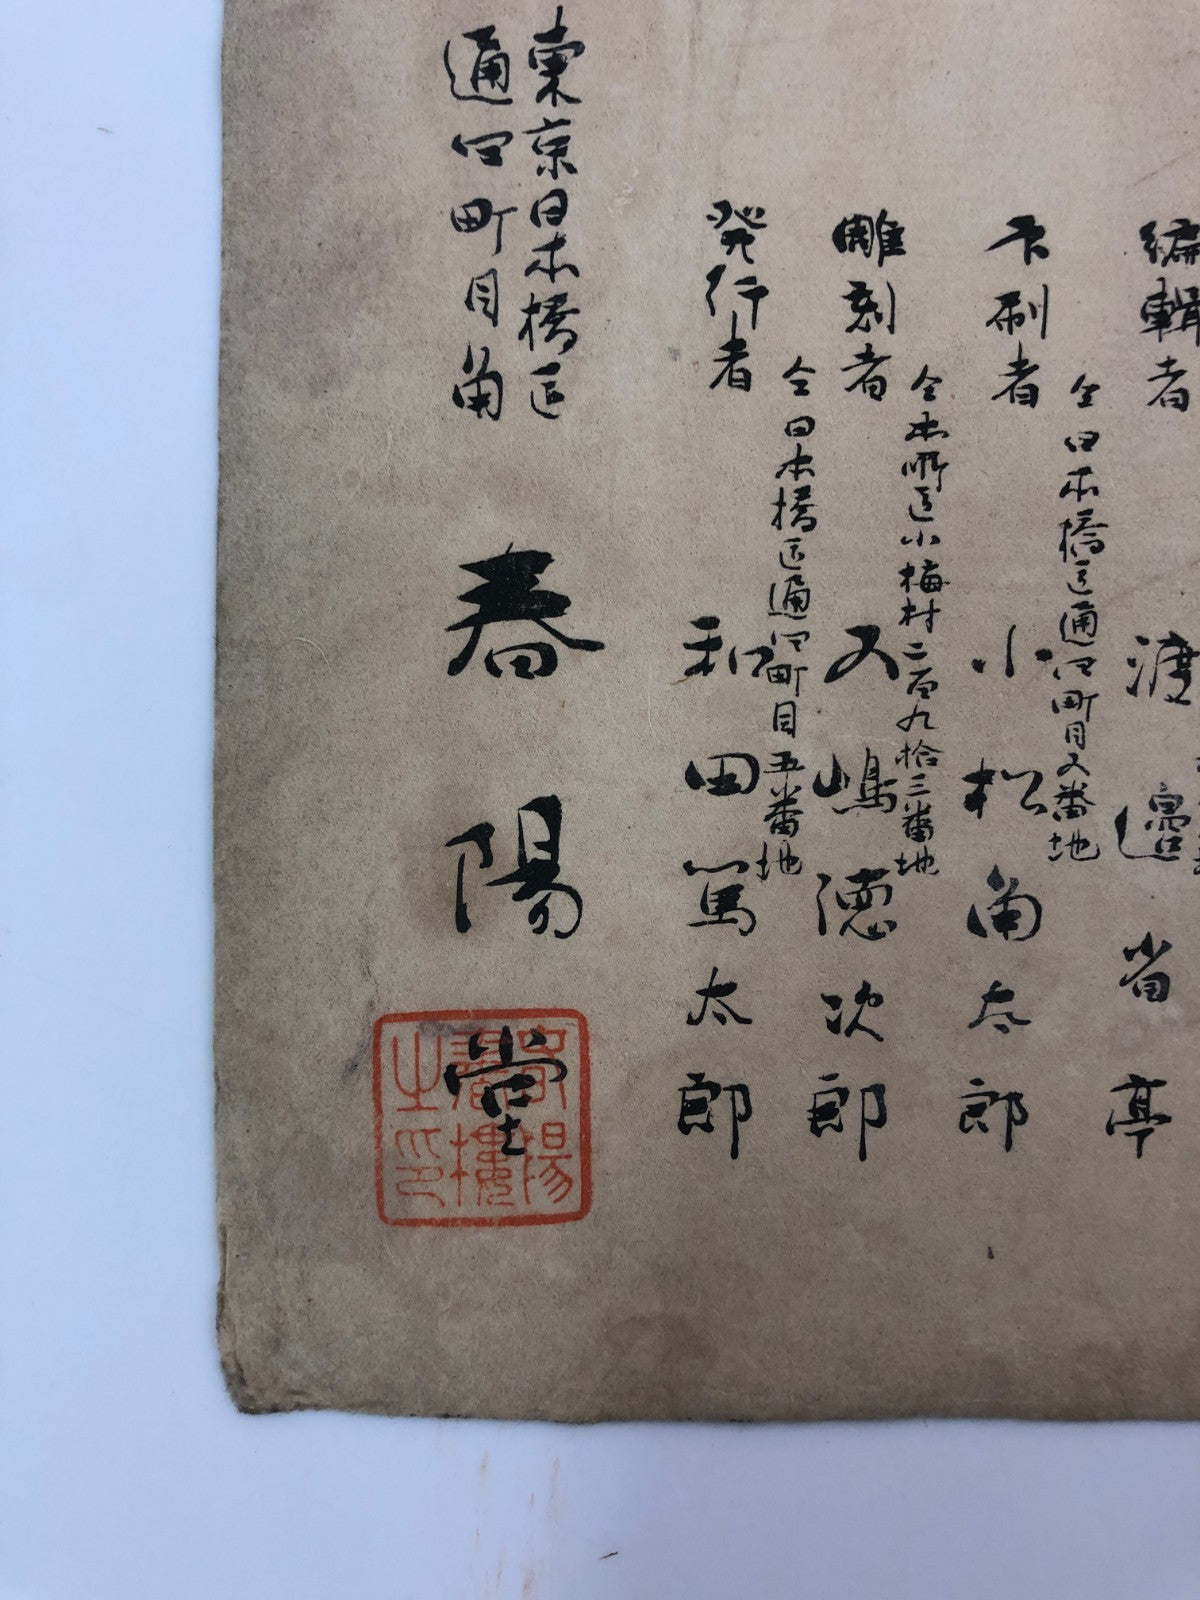 編輯者
渡邉省亭
仝日本橋区通四町目又番地
印刷者
小松角太郎
仝本所区小梅村二百九拾三番地
雕刻者
又嶋徳次郎
仝日本橋区通四町目五番地
発行者
和田篤太郎
東京日本橋区
通四町目角
春陽堂
春陽
書樓
之印